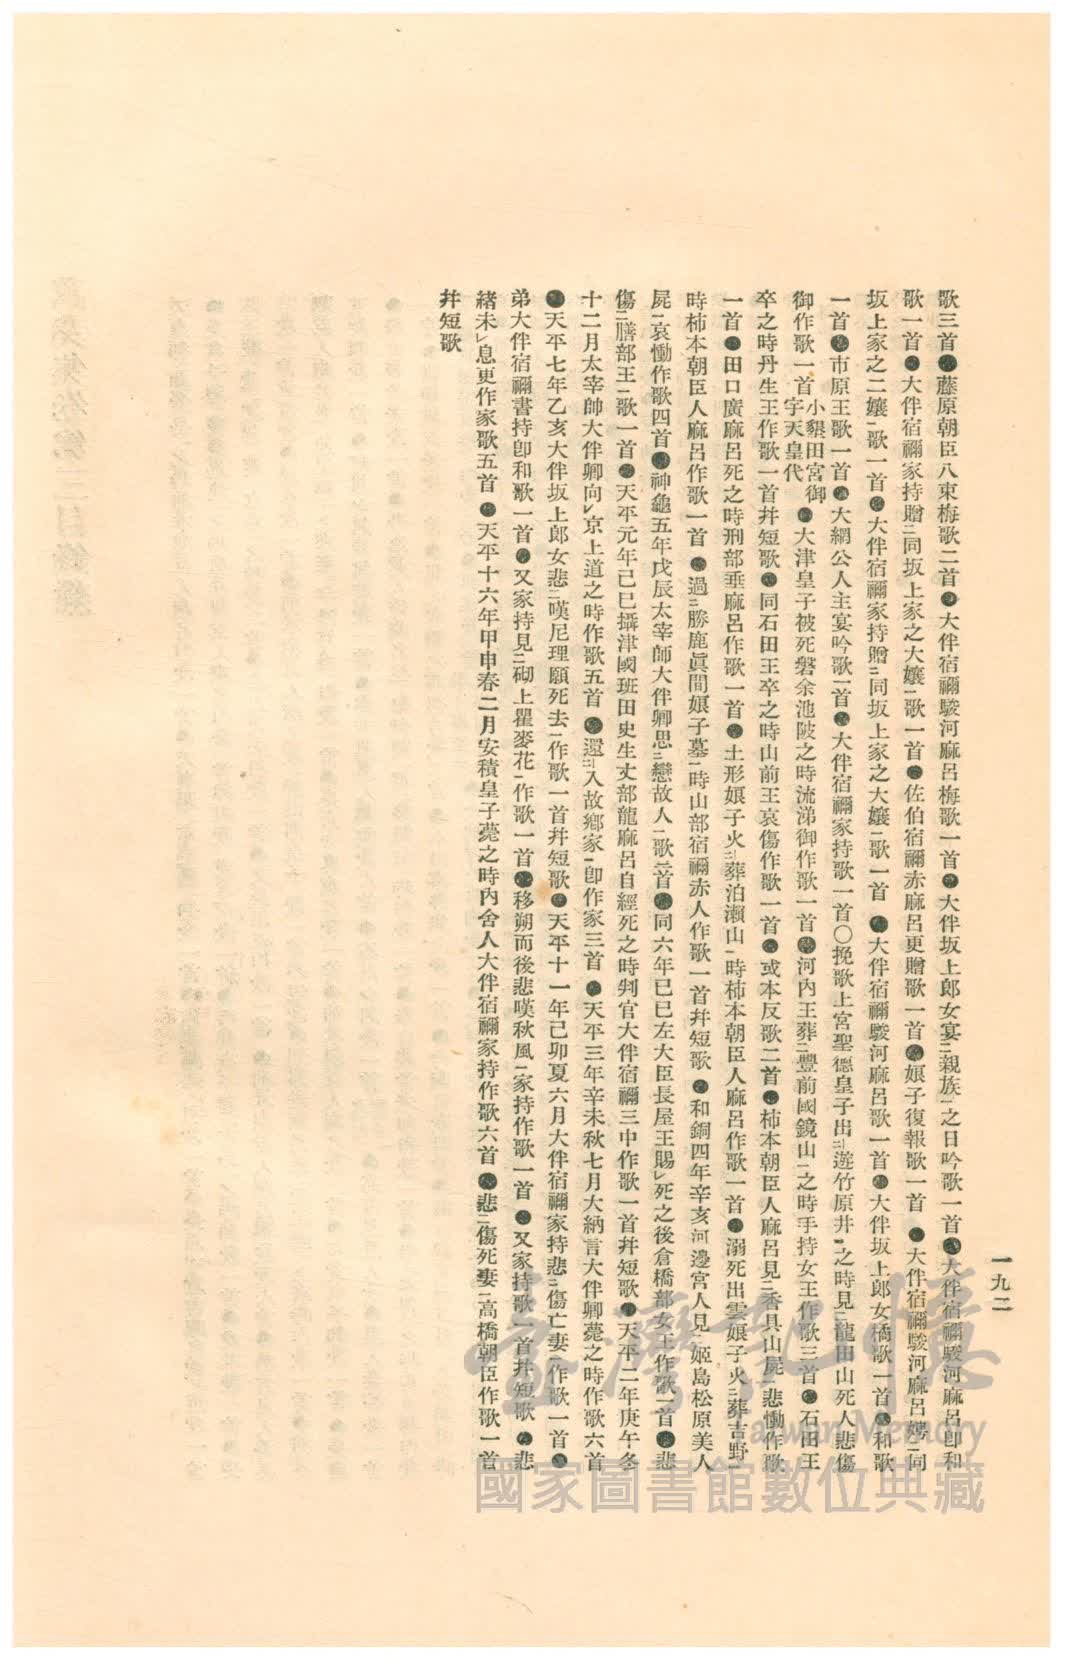 一九二
歌三首●藤原朝臣八束梅歌二首●大伴宿禰駿河麻呂梅歌一首●大伴坂上郎女宴二親族一之日吟歌一首●大伴宿禰駿河麻呂卽和
歌一首●大伴宿禰家持贈二同坂上家之大孃一歌一首●佐伯宿禰赤麻呂更贈歌一首●娘子復報歌一首●大伴宿禰駿河麻呂娉二同
坂上家之二孃一歌一首●大伴宿禰家持贈二同坂上家之大孃一歌一首●大伴宿禰駿河麻呂歌一首●大伴坂上郎女橘歌一首●和歌
一首●市原王歌一首●大網公人主宴吟歌一首●大伴宿禰家持歌一首〇挽歌上宮聖德皇子出二遊竹原井一之時見二龍田山死人悲傷
御作歌一首小墾田宮御宇天皇代●大津皇子被死磐余池陂之時流涕御作歌一首●河內王葬二豐前國鏡山一之時手持女王作歌三首●石田王
卒之時丹生王作歌一首幷短歌●同石田王卒之時山前王哀傷作歌一首●或本反歌二首●柿本朝臣人麻呂見二香具山屍一悲慟作歌
一首●田口廣麻呂死之時刑部垂麻呂作歌一首●土形娘子火二葬泊瀨山一時柿本朝臣人麻呂作歌一首●溺死出雲娘子火二葬吉野一
時柿本朝臣人麻呂作歌一首●過二勝鹿眞間娘子墓一時山部宿禰赤人作歌一首幷短歌●和銅四年辛亥河邊宮人見二姬島松原美人
屍一哀慟作歌四首●神龜五年戊辰太宰師大伴卿思二戀故人一歌三首●同六年己巳左大臣長屋王賜レ死之後倉橋部女王作歌一首●悲
傷二膳部王一歌一首●天平元年己巳攝津國班田史生丈部龍麻呂自經死之時判官大伴宿禰三中作歌一首幷短歌●天平二年庚午冬
十二月太宰帥大伴卿向レ京上道之時作歌五首●還二入故鄉家一卽作家三首●天平三年辛未秋七月大納言大伴卿薨之時作歌六首
●天平七年乙亥大伴坂上郎女悲二嘆尼理願死去一作歌一首幷短歌●天平十一年己卯夏六月大伴宿禰家持悲二傷亡妻一作歌一首●
弟大伴宿禰書持卽和歌一首●又家持見二砌上瞿麥花一作歌一首●移朔而後悲嘆秋風一家持作歌一首●又家持歌一首幷短歌●悲
緖未レ息更作家歌五首●天平十六年甲申春二月安積皇子薨之時內舍人大伴宿禰家持作歌六首●悲二傷死妻一高橋朝臣作歌一首
幷短歌
臺灣記憶
Taiwan Memory
國家圖書館數位典藏